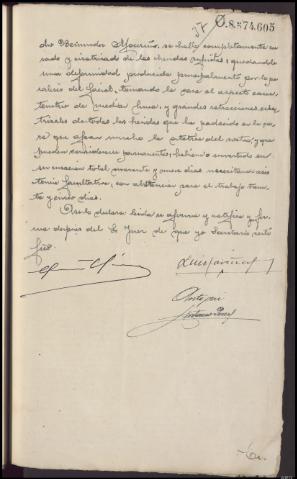 37 O.8574.605
do Bermudez Mouriño, se halla completamente cu
rado y cicatrizado de las heridas sufridas; quedándole
una deformidad producida principalmente por la pa
ralisis del facial, tomando la cara el aspecto carac
teristico de media luna, y grandes retracciones cica
triciales de todas las heridas que ha padecido en la ca
ra que afean mucho la estética del rostro, y que
pueden considerarse permanentes, habiendo invertido en
su curación total noventa y nueve dias necesitando asis
tencia facultativa, con abstencion para el trabajo
y días.
Así lo declara leida se afirma y ratifica y fir
ma despues del Sr Juez de que yo Secretario certi
fico.
Luis
Antemi